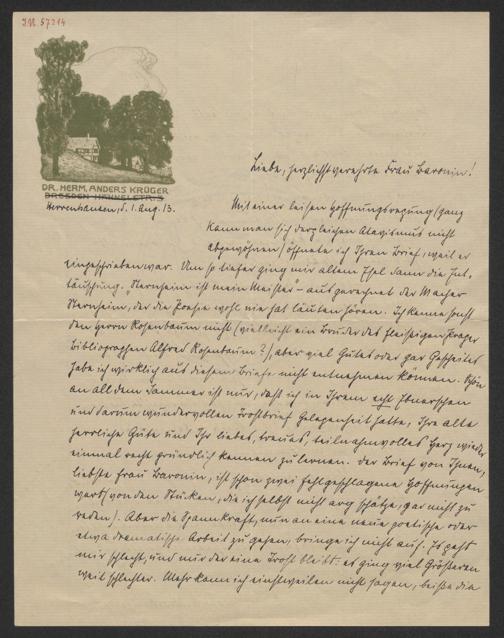 I.N. 57214
DR. HERM. ANDERS KRÜGER
DRESDEN HÄHNELSTR. 5
Herrenhausen, d. 1. Aug. 13.
Liebe, herzlichst verehrte Frau Baronin!
Mit einer leisen Hoffnungsregung (ganz
kann man sich dergleichen Atavismus nicht
abgewöhnen) öffnete ich Ihren Brief, weil er
eingeschrieben war. Um so tiefer ging mir altem Esel dann die Ent-
täuschung. "Sternheim ist mein Meister" – ausgerechnet der Macher
Sternheim, der die Poesie wohl nie hat läuten hören. Ich kenne sonst
den Herrn Rosenbaum nicht (vielleicht ein Bruder des fleissigen Prager
Bibliographen Alfred Rosenbaum?), aber viel Gutes oder gar Gescheites
habe ich wirklich aus diesem Briefe nicht entnehmen können. Schön
an all dem Jammer ist nur, daß ich in Ihrem echt Ebnerschen
und darum wundervollen Trostbrief Gelegenheit hatte, Ihre alte
herrliche Güte und Ihr liebes, treues, teilnahmvolles Herz wieder
einmal recht gründlich kennen zu lernen. Der Brief von Ihnen,
liebste Frau Baronin, ist schon zwei fehlgeschlagene Hoffnungen
wert (von den Stücken, die ich selbst nicht arg schätze, gar nicht zu
reden). Aber die Spannkraft, nun an eine neue poetische oder
etwa dramatische Arbeit zu gehen, bringe ich nicht auf. Es geht
mir schlecht, und nur der eine Trost bleibt: es ging viel Größeren
weit schlechter. Mehr kann ich einstweilen nicht sagen, beiße die